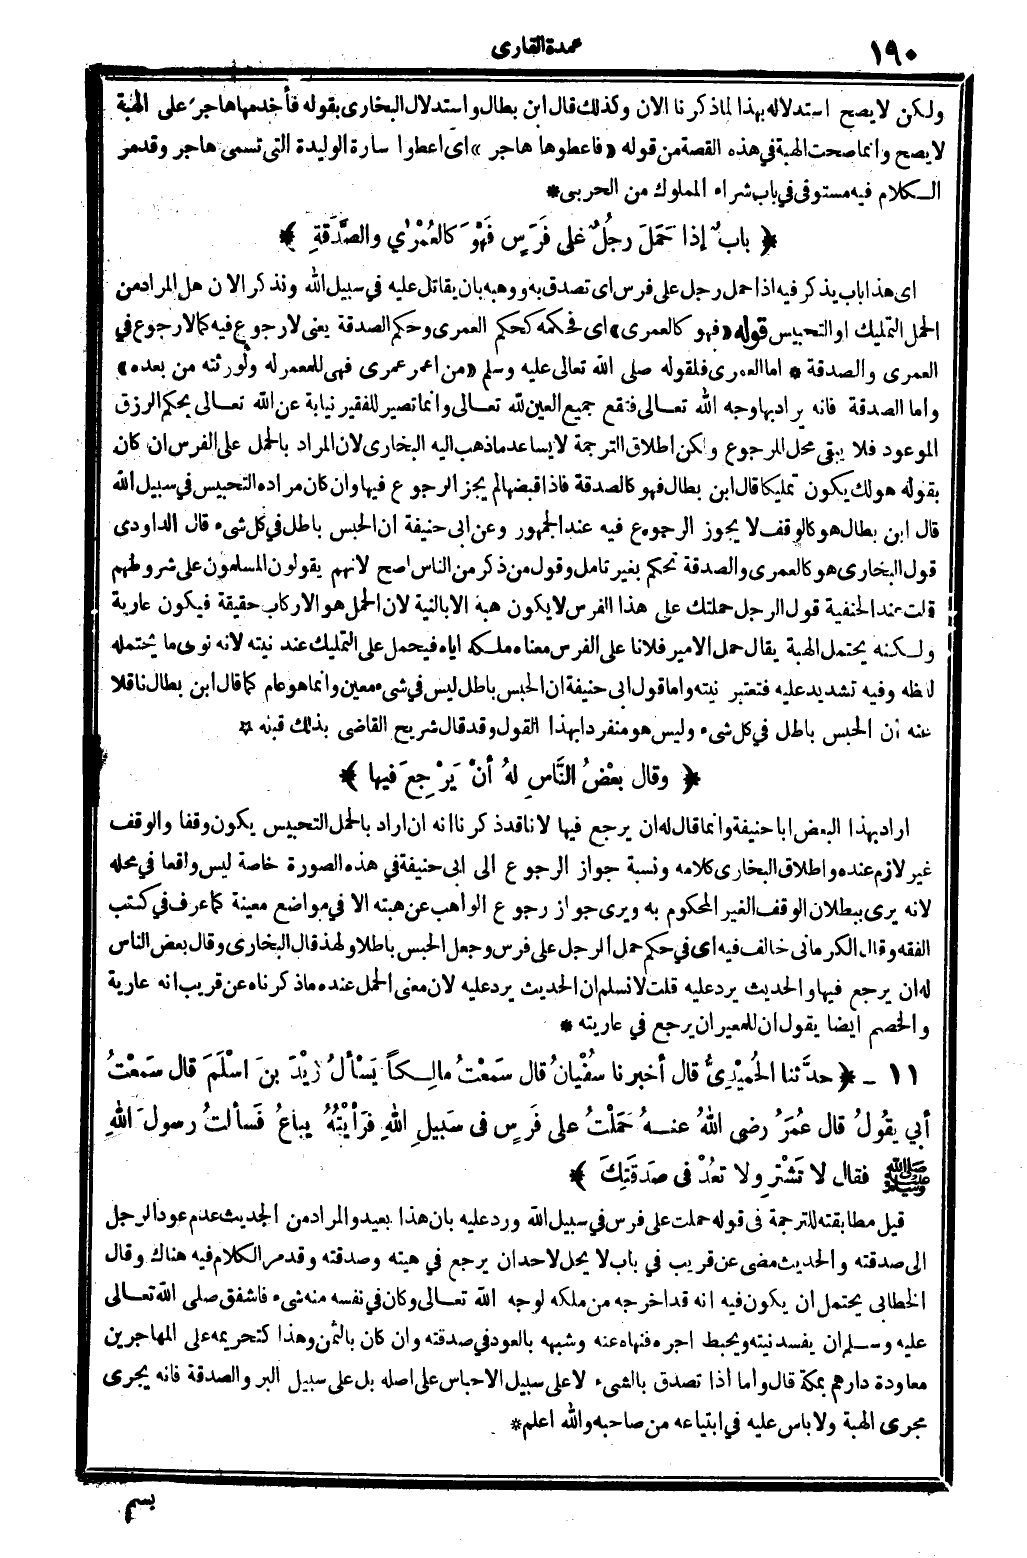 ١٩٠
عمدة القارى
ولكن لا يصح استدلاله بهذا لما ذكرنا الان وكذلك قال ابن بطال واستدلال البخارى بقوله فأخدمها هاجر على الهبة
لا يصح وانما صحت الهبة في هذه القصة من قوله «فاعطوها هاجر» اى اعطوا سارة الوليدة التى تسمى هاجر وقد مر
الكلام فيه مستوفى في باب شراء المملوك من الحربى *
﴿ بابٌ إذا حَمَلَ رجُلٌ على فَرَسٍ فَهْوَ كالعُمْرَي والصَّدَقَةِ ﴾
اى هذا باب يذكر فيه اذا حمل رجل على فرس اى تصدق به ووهبه بان يقاتل عليه في سبيل الله ونذكر الان هل المراد من
الحمل التمليك او التحبيس قوله «فهو كالعمرى» اى فحكمه كحكم العمرى وحكم الصدقة يعنى لا رجوع فيه كما لا رجوع في
العمرى والصدقة * اما العمرى فلقوله صلى الله تعالى عليه وسلم «من اعمر عمرى فهى للمعمر له ولورثته من بعده»
واما الصدقة فانه يراد بها وجه الله تعالى فتقع جميع العين لله تعالى وانما تصير للفقير نيابة عن الله تعالى بحكم الرزق
الموعود فلا يبقى محل للرجوع ولكن اطلاق الترجمة لا يساعد ما ذهب اليه البخارى لان المراد بالحمل على الفرس ان كان
بقوله هو لك يكون تمليكا قال ابن بطال فهو كالصدقة فاذا قبضها لم يجز الرجوع فيها وان كان مراده التحبيس في سبيل الله
قال ابن بطال هو كالوقف لا يجوز الرجوع فيه عند الجمهور وعن ابى حنيفة ان الحبس باطل في كل شىء قال الداودى
قول البخارى هو كالعمرى والصدقة تحكم بغير تامل وقول من ذكر من الناس اصح لانهم يقولون المسلمون على شروطهم
قلت عند الحنفية قول الرجل حملتك على هذا الفرس لا يكون هبة الا بالنية لان الحمل هو الاركاب حقيقة فيكون عارية
ولكنه يحتمل الهبة يقال حمل الامير فلانا على الفرس معناه ملكه اياه فيحمل على التمليك عند نيته لانه نوى ما يحتمله
لفظه وفيه تشديد عليه فتعتبر نيته واما قول ابى حنيفة ان الحبس باطل ليس في شىء معين وانما هو عام كما قال ابن بطال ناقلا
عنه أن الحبس باطل في كل شىء وليس هو منفردا بهذا القول وقد قال شريح القاضى بذلك قبله *
﴿ وقال بعْضُ النَّاسِ لهُ أنْ يَرْجِعَ فيها ﴾
اراد بهذا البعض ابا حنيفة وانما قال له ان يرجع فيها لانا قد ذكرنا انه ان اراد بالحمل التحبيس يكون وقفا والوقف
غير لازم عنده واطلاق البخارى كلامه ونسبة جواز الرجوع الى ابى حنيفة في هذه الصورة خاصة ليس واقعا في محله
لانه يرى ببطلان الوقف الغير المحكوم به ويرى جواز رجوع الواهب عن هبته الا في مواضع معينة كما عرف في كتب
الفقه وقال الكرمانى خالف فيه اى في حكم حمل الرجل على فرس وجعل الحبس باطلا ولهذ قال البخارى وقال بعض الناس
له ان يرجع فيها والحديث يرد عليه قلت لا نسلم ان الحديث يرد عليه لان معنى الحمل عنده ما ذكرناه عن قريب انه عارية
والخصم ايضا يقول ان للمعير ان يرجع في عاريته *
١١ - ﴿ حدَّثنا الحُمَيْدِىُّ قال أخبرنا سفْيانُ قال سَمَعْتُ مالِكاً يَسْألُ زيْدَ بنَ اسْلَمَ قال سَمَعْتُ
أبي يقُولُ قال عُمَرُ رضى اللهُ عنهُ حَمَلْتُ على فَرَسٍ فى سَبيلِ اللهِ فَرَأيْتُهُ يباعُ فَسألتُ رسولَ اللهِ
ﷺ فقال لا تَشْترِ ولا تعُدْ فى صدَقَتِكَ ﴾
قيل مطابقته للترجمة فى قوله حملت على فرس في سبيل الله ورد عليه بان هذا بعيد والمراد من الحديث عدم عود الرجل
الى صدقته والحديث مضى عن قريب في باب لا يحل لاحد ان يرجع في هبته وصدقته وقد مر الكلام فيه هناك وقال
الخطابى يحتمل ان يكون فيه انه قد اخرجه من ملكه لوجه الله تعالى وكان في نفسه منه شىء فاشفق صلى الله تعالى
عليه وسلم ان يفسد نيته ويحبط اجره فنهاه عنه وشبهه بالعود في صدقته وان كان بالثمن وهذا كتحريمه على المهاجرين
معاودة دارهم بمكة قال واما أذا تصدق بالشىء لا على سبيل الاحباس على اصله بل على سبيل البر والصدقة فانه يجرى
مجرى الهبة ولا باس عليه في ابتياعه من صاحبه والله اعلم *
بسم